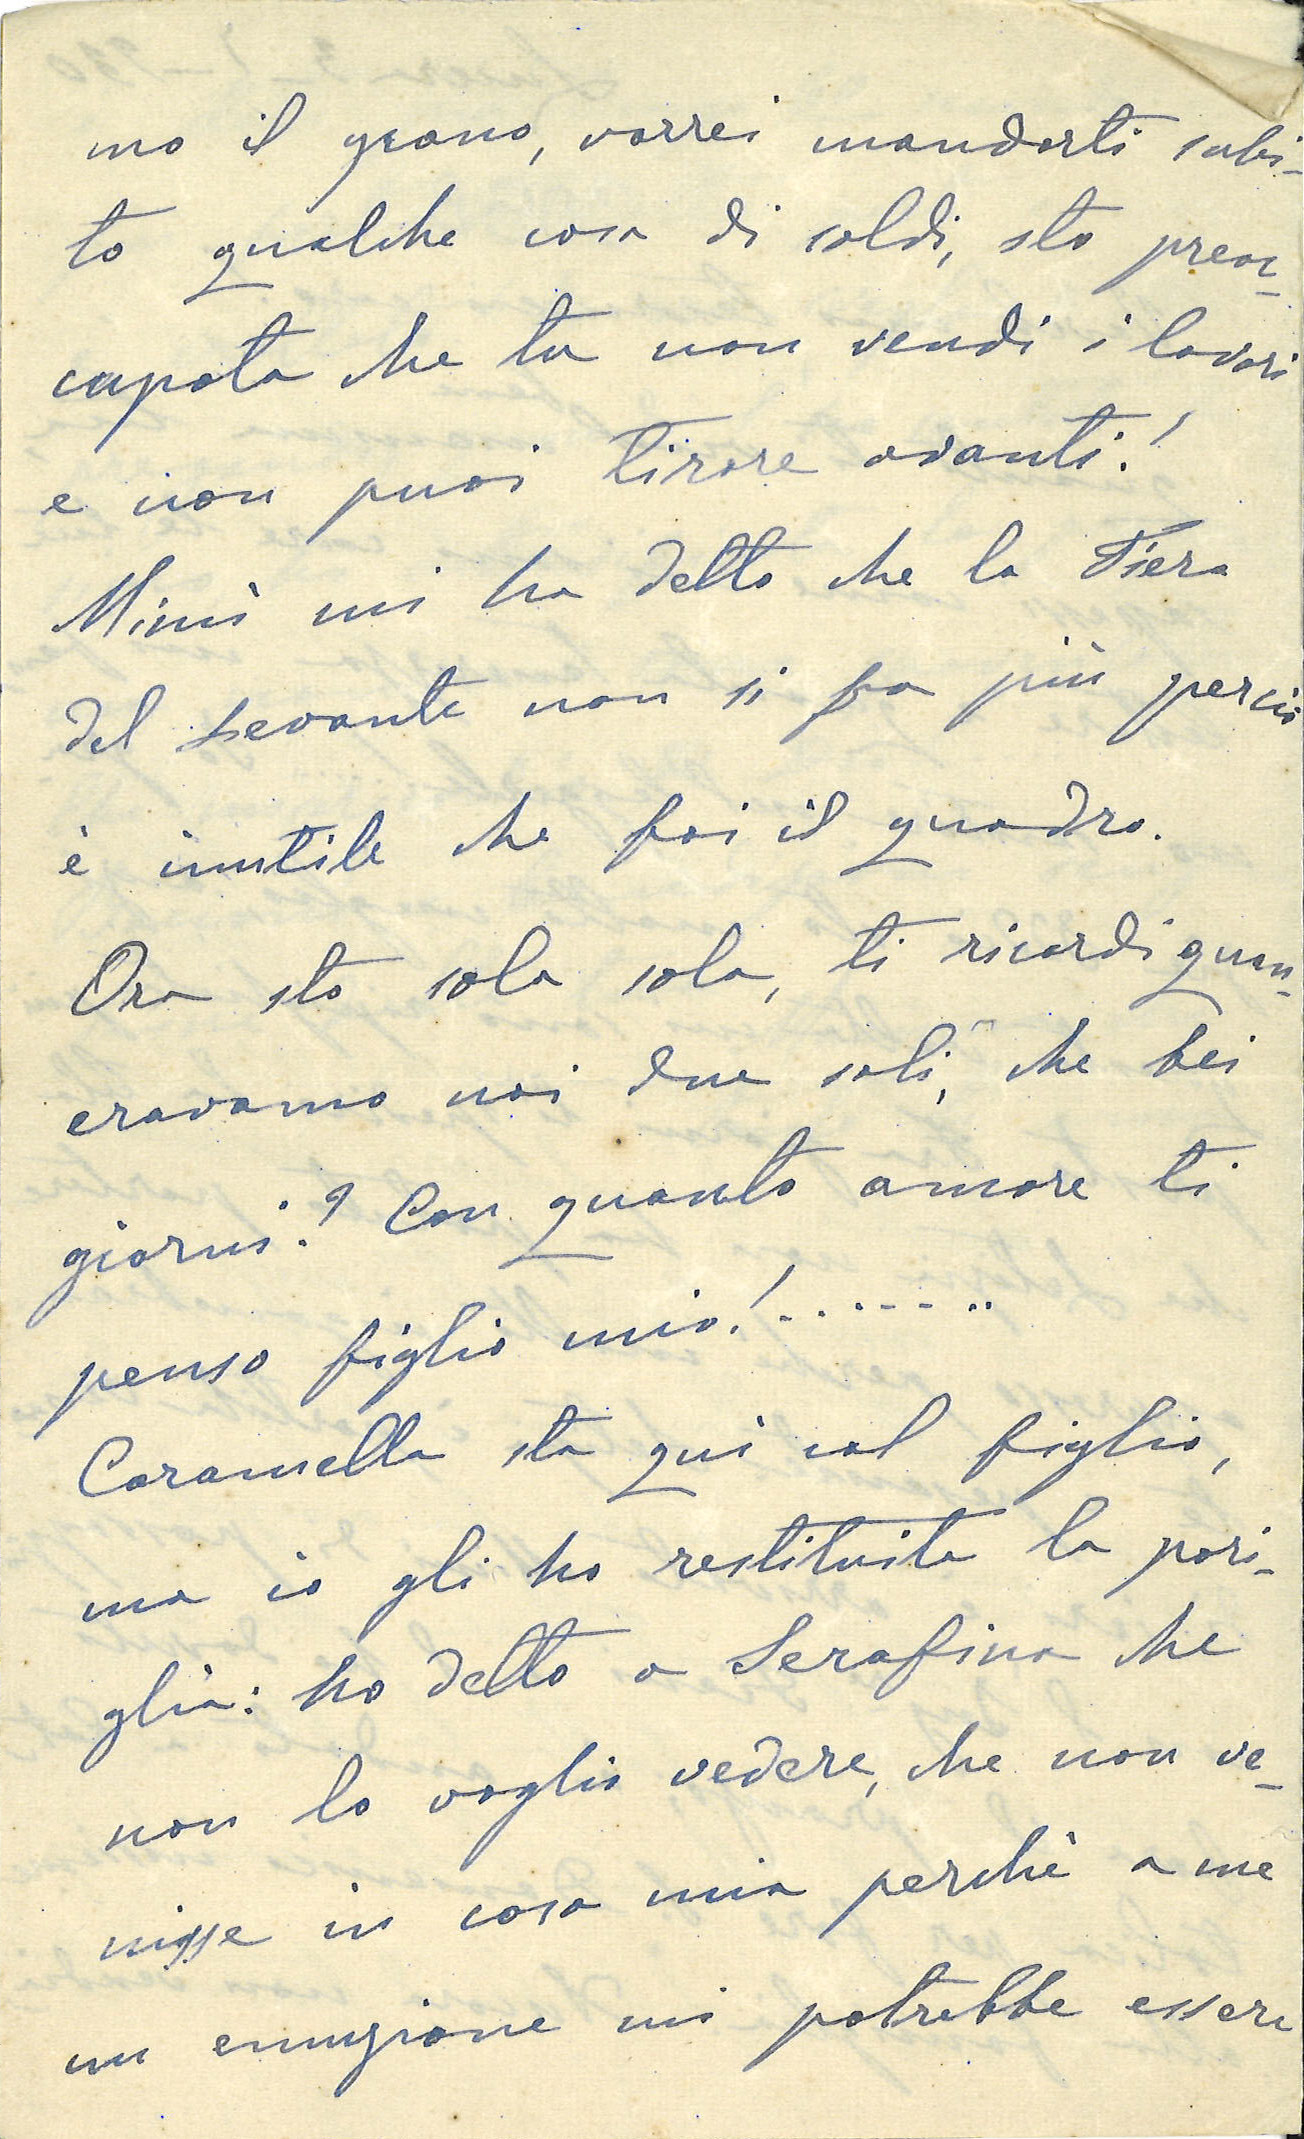 mo il grano, vorrei mandarti subi-
to qualche cosa di soldi, sto preoc-
cupata che tu non vendi i lavori
e non puoi tirare avanti!
Mimì mi ha detto che la Fiera
del Levante non si fa più perciò
è inutile che fai il quadro.
Ora sto sola sola, ti ricordi quan-
eravamo noi due soli, che bei
giorni? Con quanto amore ti
penso figlio mio!.........
Caramella sta quì col figlio,
ma io gli ho restituita la pari-
glia: ho detto a Serafina che
non lo voglio vedere, che non ve-
nisse in casa mia perchè a me
un emuzione mi potrebbe essere